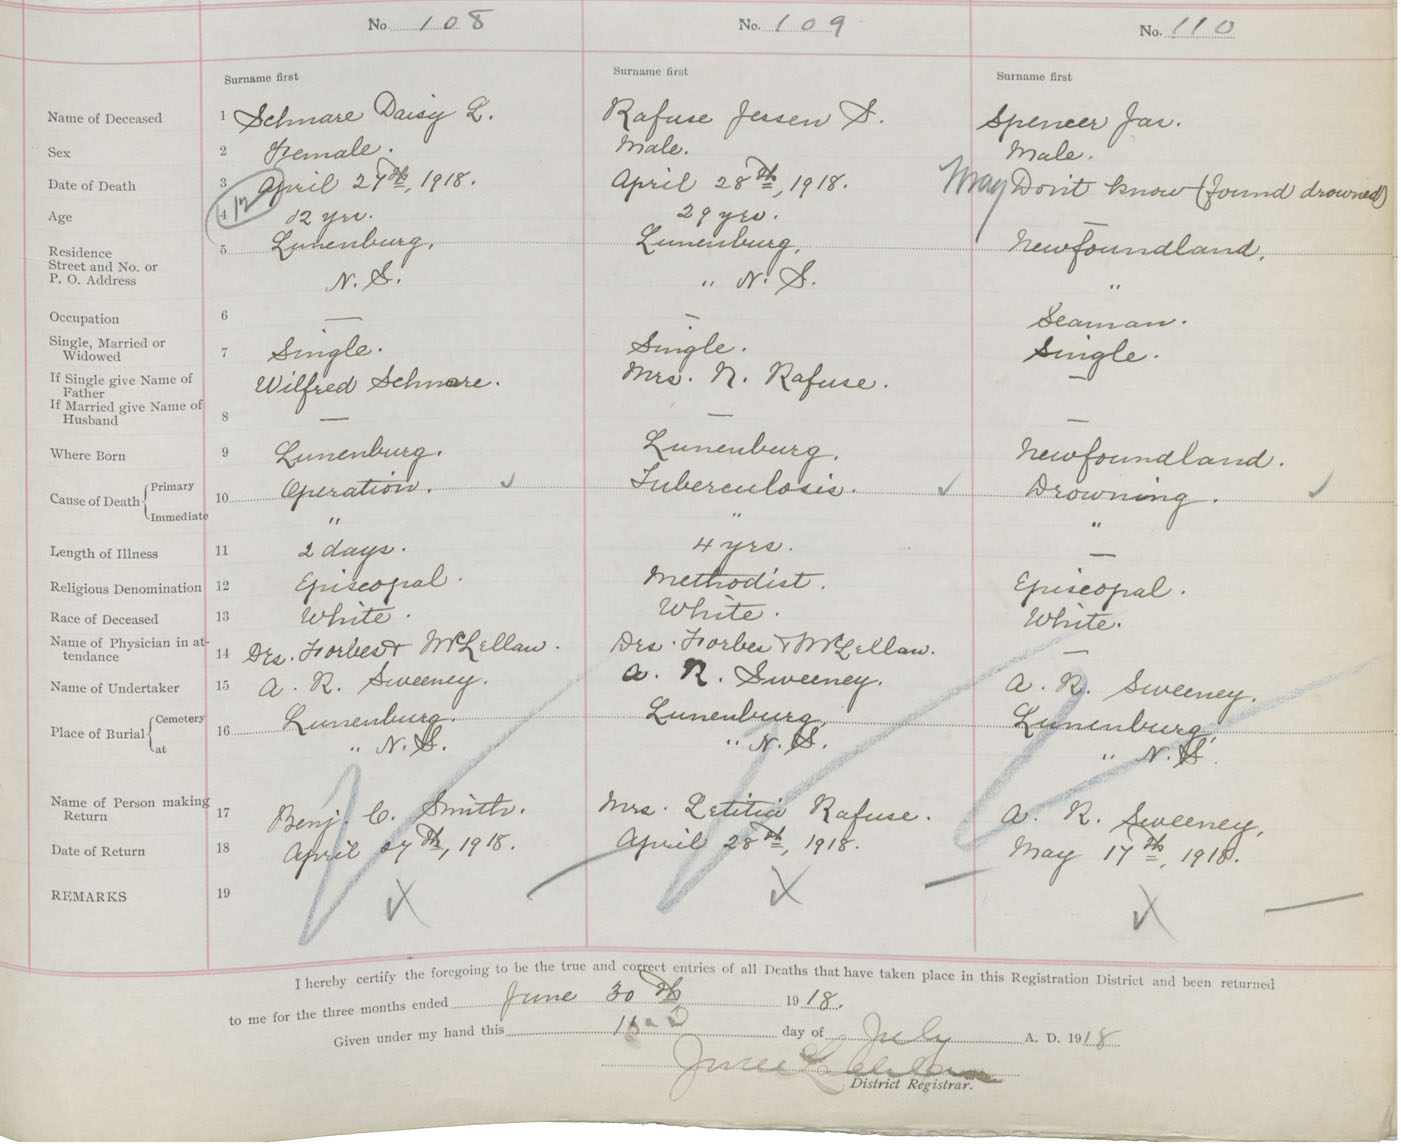 No. 108 No. 109 No. 110
Surname first Surname first Surname first
Name of Deceased 1 Schnare Daisy L. Rafuse Jessen S. Spencer Jas.
Sex 2 Female. Male. Male.
Date of Death 3 April 27th, 1918. April 28th, 1918. May Don't know (found drowned)
Age 4 12 12 yrs. 29 yrs. —
Residence 5 Lunenburg, Lunenburg, Newfoundland,
Street and No. or
P. O. Address N. S. " N. S. "
Occupation 6 — — Seaman.
Single, Married or Widowed 7 Single. Single. Single.
If Single give Name of Father Wilfred Schnare. Mrs. N. Rafuse. —
If Married give Name of Husband 8 — — —
Where Born 9 Lunenburg. Lunenburg. Newfoundland.
Cause of Death { Primary 10 Operation. ✓ Tuberculosis. ✓ Drowning. ✓
Immediate " " "
Length of Illness 11 2 days. 4 yrs. —
Religious Denomination 12 Episcopal. Methodist. Episcopal.
Race of Deceased 13 White. White. White.
Name of Physician in attendance 14 Drs. Forbes & McLellan. Drs. Forbes & McLellan. —
Name of Undertaker 15 A. R. Sweeney. A. R. Sweeney. A. R. Sweeney.
Place of Burial { Cemetery 16 Lunenburg. Lunenburg, Lunenburg,
at " N. S. " N. S. " N. S.
Name of Person making Return 17 Benj. C. Smith. Mrs. Letitia Rafuse. A. R. Sweeney,
Date of Return 18 April 27th, 1918. April 28th, 1918. May 17th, 1918.
REMARKS 19
I hereby certify the foregoing to be the true and correct entries of all Deaths that have taken place in this Registration District and been returned
to me for the three months ended June 30th 1918.
Given under my hand this day of July A. D. 1918
District Registrar.